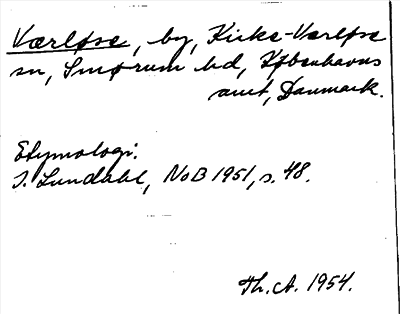 Værløse, by, Kirke-Værløse
sn, Smørum hd, Københavns
amt, Danmark.
Etymologi:
I. Lundahl, NoB 1951, s. 48.
Th. A. 1954.